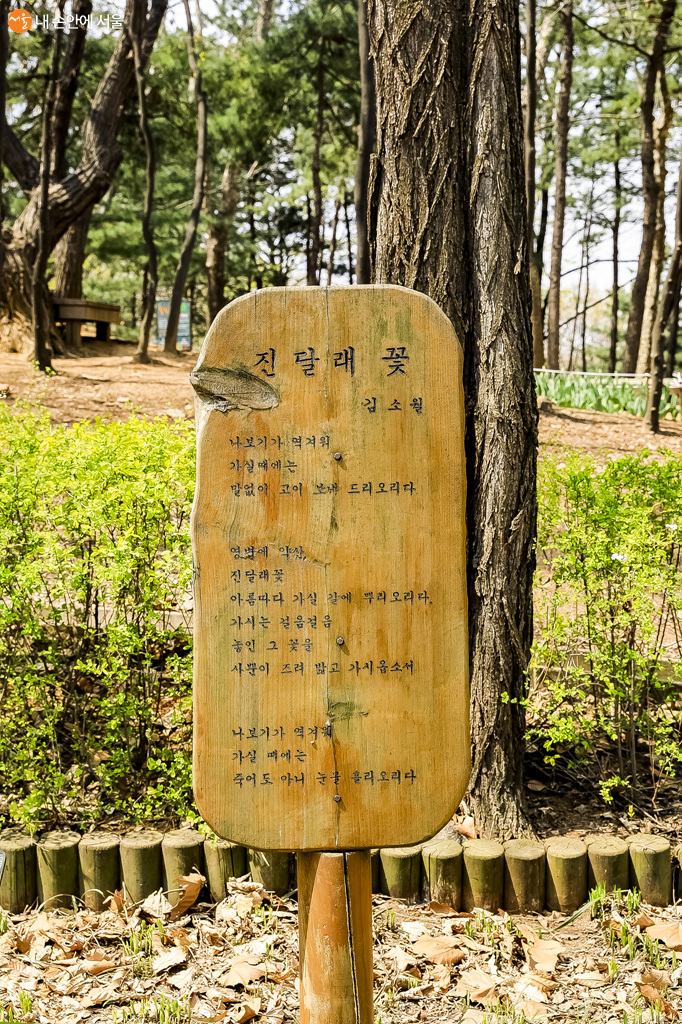 서울 내 손안에 서울
진달래 꽃
김소월
나보기가 역겨워
가실때에는
말없이 고이 보내 드리오리다
영변에 약산,
진달래꽃
아름따다 가실 길에 뿌리오리다.
가시는 걸음걸음
놓인 그 꽃을
사뿐이 즈려 밟고 가시옵소서
나보기가 역겨워
가실 때에는
죽어도 아니 눈물 흘리오리다